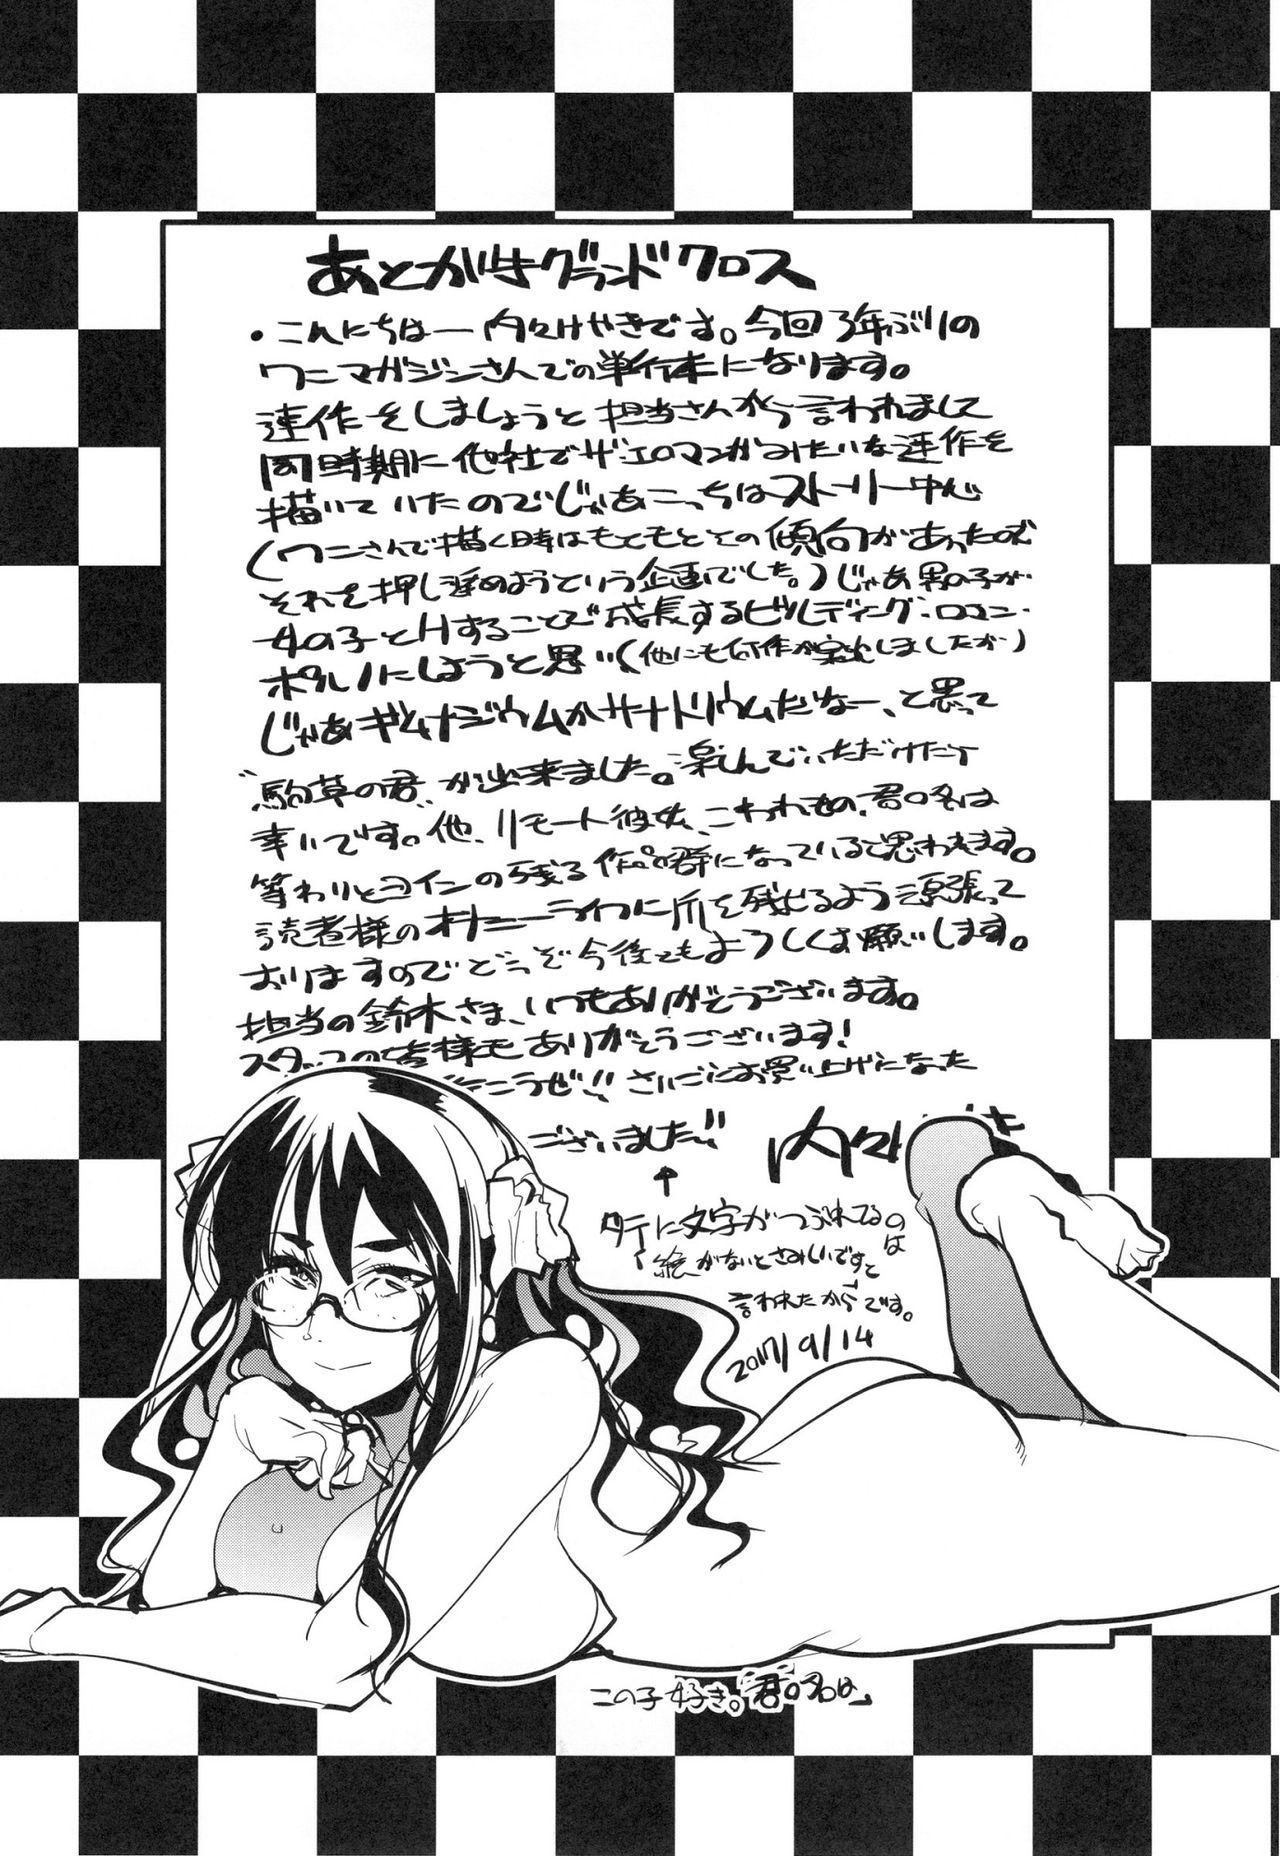 あとがきグランドクロス
・こんにちはー内々けやきです。今回3年ぶりの
ワニマガジンさんでの単行本になります。
連作をしましょうと担当さんから言われまして
同時期に他社でザ・エロマンガみたいな連作を
描いていたのでじゃあこっちはストーリー中心
(ワニさんで描く時はもともとその傾向があったので
それを押し進めようという企画でした。)じゃあ男の子が
女の子とHすることで成長するビルディング・ロマン・
ポルノにしようと思い(他にも何作か案出ししましたが)
じゃあギムナジウムかサナトリウムだなー、と思って
"駒草の君"が出来ました。楽しんでいただけたら
幸いです。他、リモート彼女、こわれもの、君の名は
等わりとヨインの残る作品群になっていると思われます。
読者様のオナニーライフに爪を残せるよう頑張って
おりますのでどうぞ今後ともよろしくお願いします。
担当の鈴木さま、いつもありがとうございます。
スタッフの皆様もありがとうございます!
こうぜ!! さいごにお買い上げになった
ございました!!
内々
↑
タテに文字がつぶれてるのは
"絵がないとさみしいです"と
言われたからです。
2017/9/14
この子好き。「君の名は」